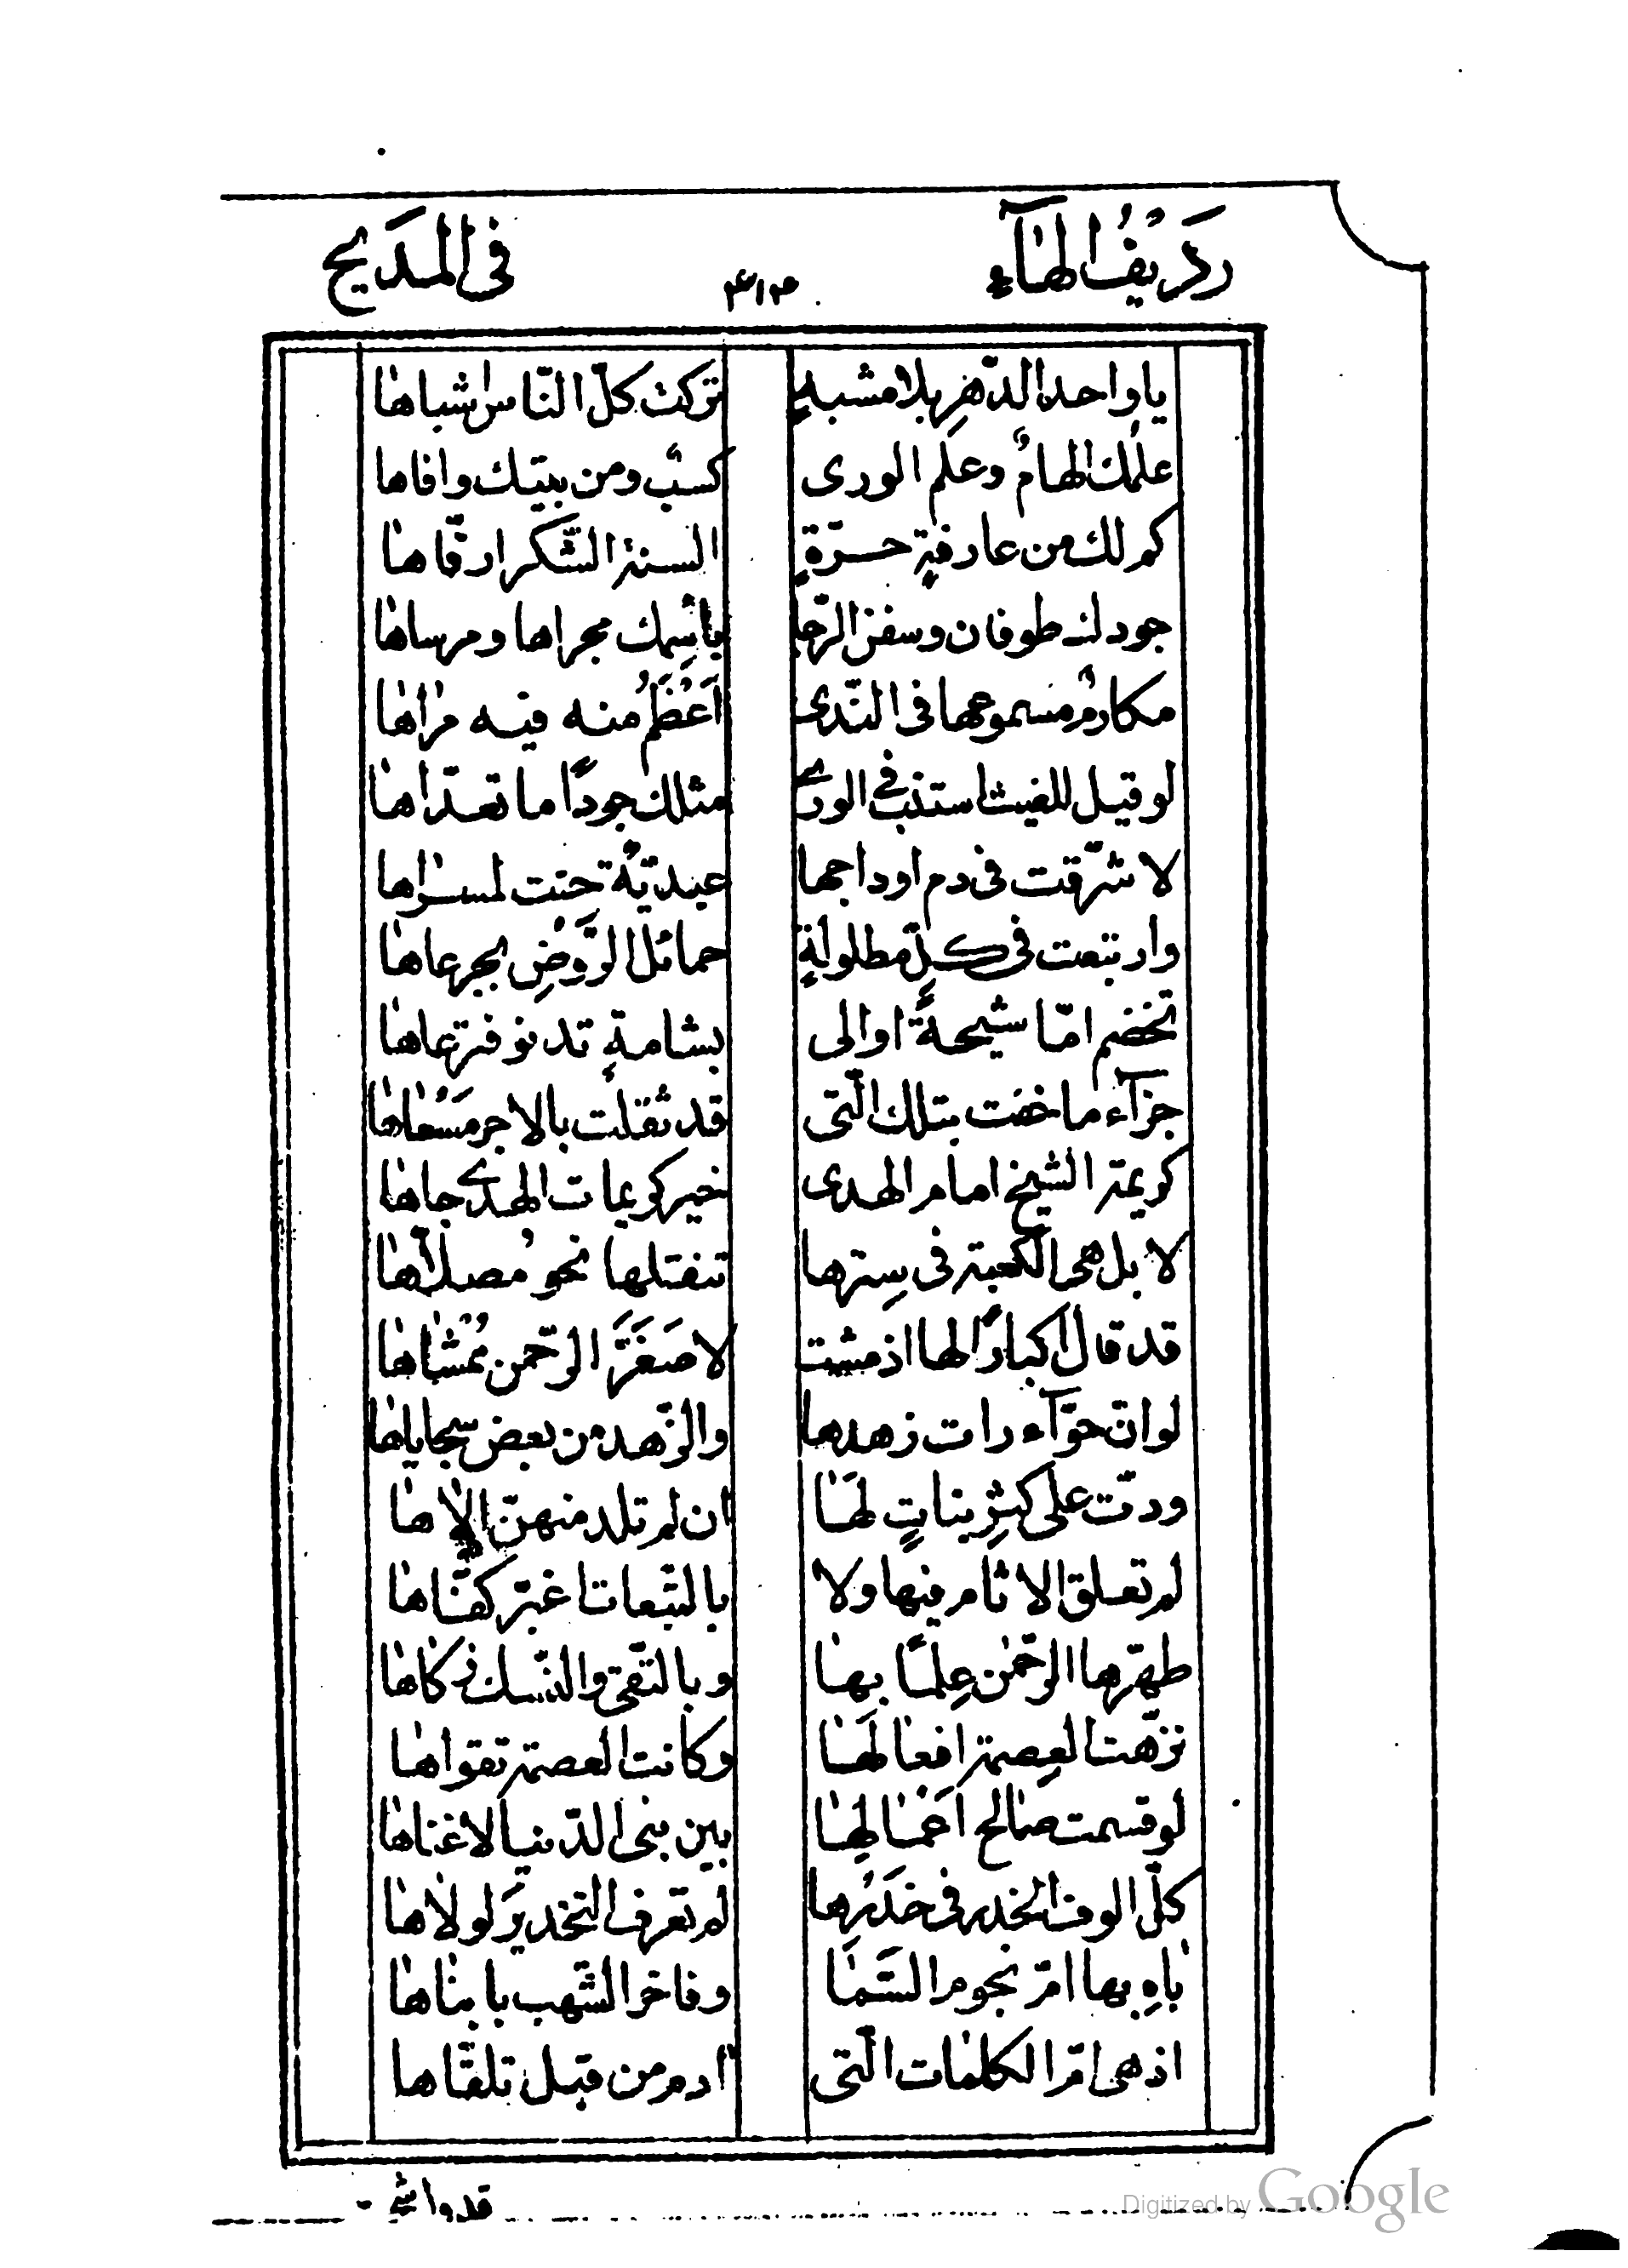 رَدِيْفُ الهَآءِ ٣١٣ فى المَديح
يا واحد الدّهرِ بلا مشبهٍ تركت كلّ النّاس اشباها
علمك الهامٌ وعلم الورى كسبٌ ومن بيتك وافاها
كم لك من عارفةٍ حرّةٍ السنة الشّكر ارقّاها
جودك طوفان وسفن الرّجا بأسمك مجراها ومرساها
مكارمٌ مسموعها فى النّدى اَعْظَمُ منه فيه مراها
لو قيل للغيث استنب فى الورى مثلك جودًا ما تعدّاها
لا شرّقت فى دم اوداجها عيديّةٌ حنت لمسراها
وارتبعت فى كلّ مطلولةٍ حمائل الرَّوضِ بجرعاها
تخضم امّا شيحةً او الى بشامةٍ تدنو فترعاها
جزآء ما خفت بتلك الّتى قد ثقلت بالاجر مَسْعاها
كريمة الشيخ امام الهدى خير كريمات الهدى جاها
لا بل هى الكعبة فى سِترها تنقلها نحو مُصلّاها
قد قال اكبارًا لها اذ مشت لا صَغَّرَ الرّحمن مُمْشاها
لو انّ حوّآء رات زهدها والزّهد من بعض سجاياها
ودّت على كثرِ بناتٍ لهَا ان لم تلد منهنّ الّاها
لم تعلق الاثام فيها ولا بالتبعات اغبرّ كفّاها
طهّرها الرّحمٰن عِلمًا بها وبالتّقى والنّسك زكاها
نزّهت العِصمة افعالهَا وكانت العصمة تقواها
لو قسمت صالح اَعْمالِها بين بنى الدّنيا لاغناها
كلّ الوف الخدر فى خَدْرِها لم تعرف التخديرَ لولاها
باهِ بها امّ نجوم السّمَا وفاخر الشّهب بابناها
اذ هى امّ الكلمات الّتى ادم من قبل تلقّاها
Digitized by Google